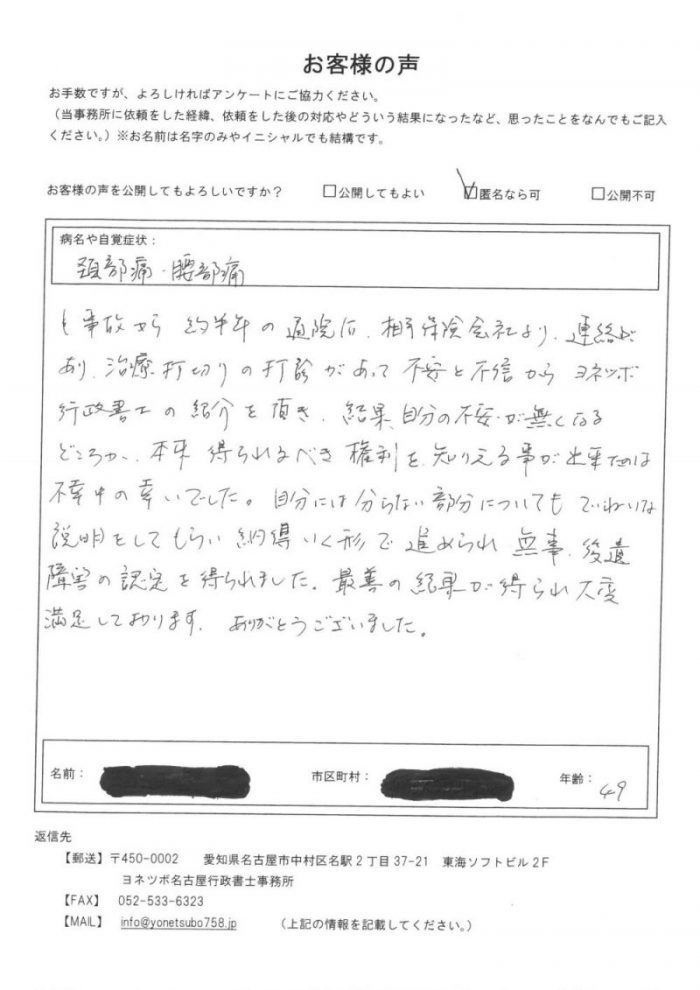 お客様の声
お手数ですが、よろしければアンケートにご協力ください。
（当事務所に依頼をした経緯、依頼をした後の対応やどういう結果になったなど、思ったことをなんでもご記入
ください。）※お名前は名字のみやイニシャルでも結構です。
お客様の声を公開してもよろしいですか？ □公開してもよい ☑匿名なら可 □公開不可
病名や自覚症状：
頚部痛・腰部痛
事故から 約半年の通院后、相手保険会社より、連絡が
あり、治療打切りの打診があって 不安と不信から ヨネツボ
行政書士の紹介を頂き、結果、自分の不安が無くなる
どころか、本来得られるべき権利を、知りえる事が出来たのは
不幸中の幸いでした。自分には分らない部分についても ていねいな
説明をしてもらい 納得いく形で進められ 無事、後遺
障害の認定を得られました。最善の結果が得られ大変
満足しております。ありがとうございました。
名前： 市区町村： 年齢： 49
返信先
【郵送】〒450-0002 愛知県名古屋市中村区名駅２丁目37-21 東海ソフトビル２F
ヨネツボ名古屋行政書士事務所
【FAX】 052-533-6323
【MAIL】 info@yonetsubo758.jp （上記の情報を記載してください。）